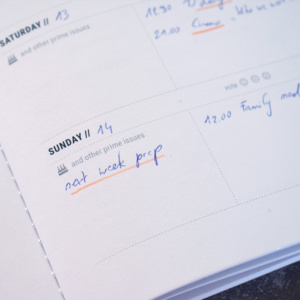 SATURDAY // 13
and other prime issues
12.30
21.00 Cinema -
VIBE
SUNDAY // 14
and other prime issues
next week prep
12.00 Family